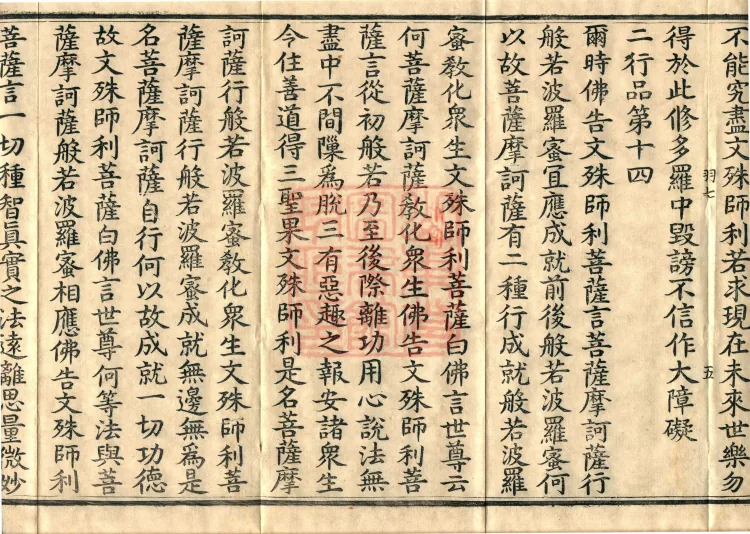 不能究盡文殊師利若求現在未來世樂勿
羽七
五
得於此修多羅中毀謗不信作大障礙
二行品第十四
爾時佛告文殊師利菩薩言菩薩摩訶薩行
般若波羅蜜宜應成就前後般若波羅蜜何
以故菩薩摩訶薩有二種行成就般若波羅
蜜教化衆生文殊師利菩薩白佛言世尊云
何菩薩摩訶薩教化衆生佛告文殊師利菩
薩言從初般若乃至後際離功用心說法無
盡中不間隟爲脫三有惡趣之報安諸衆生
令住善道得三聖果文殊師利是名菩薩摩
訶薩行般若波羅蜜教化衆生文殊師利菩
薩摩訶薩行般若波羅蜜成就無邊無爲是
名菩薩摩訶薩自行何以故成就一切功德
故文殊師利菩薩白佛言世尊何等法與菩
薩摩訶薩般若波羅蜜相應佛告文殊師利
菩薩言一切種智眞實之法遠離思量微妙